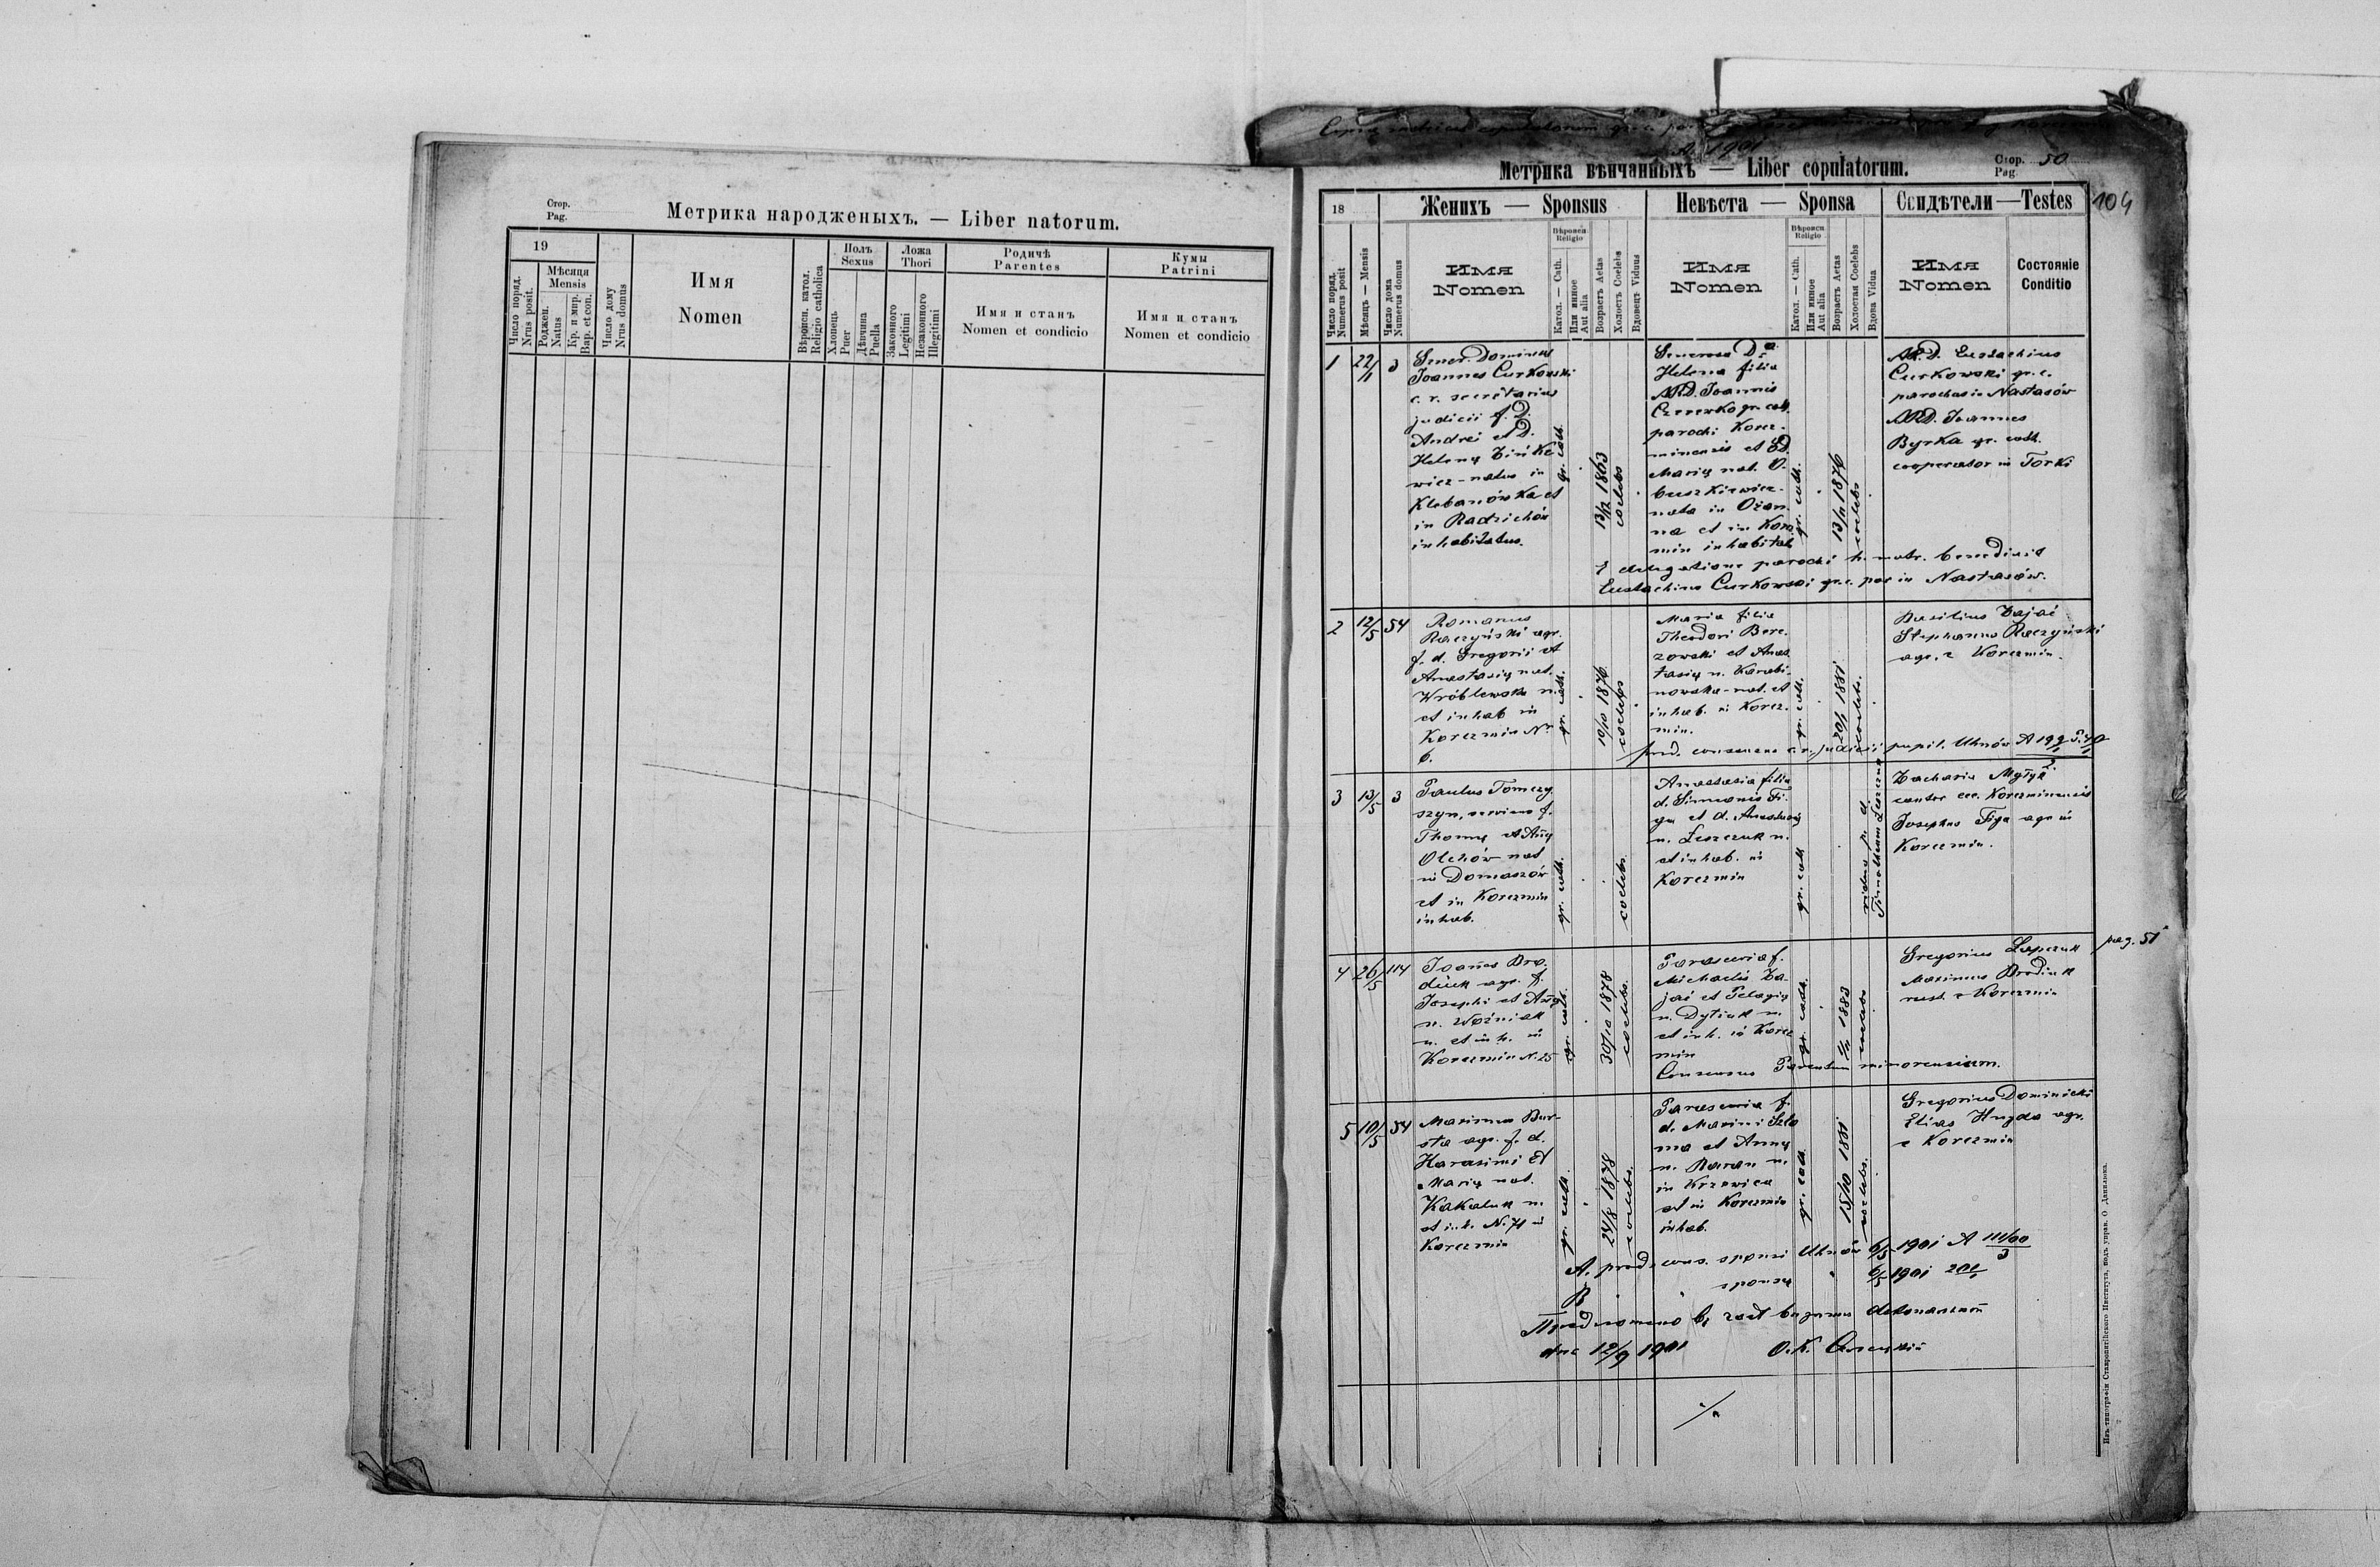 Стор.
Pag.
Метрика народженыхъ. — Liber natorum.
19
Число поряд.
Nrus posit.
Мѣсяця
Mensis
Роджен.
Natus
Кр. и мир.
Bap. et con.
Число дому
Nrus domus
Имя
Nomen
Вѣроисп. катол.
Religio catholica
Полъ
Sexus
Хлопець
Puer
Дѣвчина
Puella
Ложа
Thori
Законного
Legitimi
Незаконного
Illegitimi
Родичѣ
Parentes
Имя и станъ
Nomen et condicio
Кумы
Patrini
Имя и станъ
Nomen et condicio
1901
Метрика вѣнчанныхъ — Liber copulatorum.
Стор. 50
Pag.
104
18
Женихъ — Sponsus
Невѣста — Sponsa
Свидѣтели — Testes
Число поряд.
Numerus posit
Мѣсяцъ — Mensis
Число дома
Numerus domus
Имя
Nomen
Вѣроисп.
Religio
Катол. — Cath.
Или инное
Aut alia
Возрастъ Aetas
Холостъ Coelebs
Вдовецъ Viduus
Имя
Nomen
Вѣроисп.
Religio
Катол. — Cath.
Или инное
Aut alia
Возрастъ Aetas
Холостая Coelebs
Вдова Vidua
Имя
Nomen
Состояніе
Conditio
1 22/1 3
Gener. Dominus
Joannes Curkowski
c. r. secretarius
judicii f. D.
Andrei et D.
Helenę Zińke
wicz - natus in
Klebanówka et
in Radzichów
inhabitatus.
gr. cath.
13/12 1863
coelebs
Generosa Dª
Helena filia
ARD. Joannis
Czerewko gr. cath.
parochi Korcz-
minensis et D.
Marię nat. O-
buszkiewicz -
nata in Ożan-
na et in Korcz
min inhabitat
gr. cath.
13/11 1876
coelebs
ARD. Eustachius
Curkowski gr. c.
parochus in Nastasów
ARD. Joannes
Byrka gr. cath.
cooperator in Torki
E delegatione parochi h. matr. benedixit
Eustachius Curkowski gr. c. par in Nastasów.
2 12/5 54
Romanus
Raczyński agr.
f. d. Gregorii et
Anastasię nat.
Wróblewska n.
et inhab in
Korczmin Nr
6.
gr. cath.
10/10 1876
coelebs
Maria filia
Theodori Bere-
zowski et Anas
tasię n. Karabi-
nowska - nat. et
inhab. in Korcz-
min.
gr. cath.
20/1 1881
coelebs.
Basilius Zajac
Stephanus Raczyński
agr. z Korczmin.
prod. consensus c. r. judicii pupil. Uhnów A
3 13/5 3
Paulus Tomczy
szyn, f.
Thomę et Anę
Olchów nat
in Domaszów
et in Korczmin
inhab.
gr. cath.
coelebs
Anastasia filia
d. Simeonis Fi-
ga et d. Anastasię
n. Leszczuk n.
et inhab. in
Korczmin
gr. cath
vidua p. d.
Zacharia Mytyk
cantor ecc. Korczminensis
Josephus Figa agr in
Korczmin.
4 26/5 114
Joañes Bro-
diuk agr. f.
Josephi et Anę
n. Woźniak
n. et inh. in
Korczmin N. 25
gr. cath.
30/10 1878
coelebs.
Parascevia f.
Michaelis Za-
jac et Pelagię
n. Dytiuk n.
et inh. in Korcz
min
gr. cath.
1883
coelebs
Gregorius Lapczuk
Maximus Brodiuk
rust. z Korczmin
pag. 51
Consensus Parentum minorensium.
5 10/5 54
Maximus Bur-
sta agr. f. d.
Harasimi et
Marię nat.
Kakaluk n.
et inh. N. 71 in
Korczmin
gr. cath.
24/8 1878
coelebs.
Parascevia f.
d. Maximi Szlo
ma et Annę
n. Baran n.
in Krzewica
et in Korczmin
inhab.
gr. cath.
15/10 1881
coelebs.
Gregorius Dominicki
Elias Huzda agr.
z Korczmin
A. prod. cons. sponsi Uhnów 6/5 1901 A 111/00
3
B " " sponsę " 6/5 1901
дня 12/9 1901
Изъ типографіи Ставропигійского Института, подъ управ. О. Данилюка.